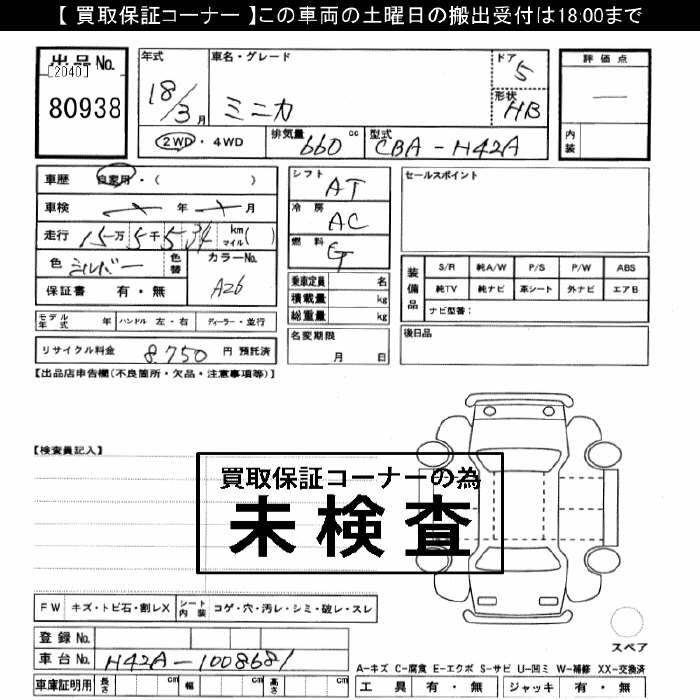 【 買取保証コーナー 】この車両の土曜日の搬出受付は18:00まで
出品No.
[2040]
80938
年式
18/3月
車名・グレード
ミニカ
ドア
5
形状
HB
評価点
―
内装
2WD ・ 4WD
排気量 660 cc
型式 CBA-H42A
車歴 自家用・( )
車検 年 月
走行 15万5千534 km マイル( )
色 シルバー 色替
カラーNo. A26
保証書 有・無
シフト AT
冷房 AC
燃料 G
乗車定員 名
積載量 kg
総重量 kg
セールスポイント
装備品
S/R 純A/W P/S P/W ABS
純TV 純ナビ 革シート 外ナビ エアB
ナビ型番:
モデル年式 年 ハンドル 左・右 ディーラー・並行
名変期限 月 日
後日品
リサイクル料金 8,750 円 預託済
【出品店申告欄(不良箇所・欠品・注意事項等)】
【検査員記入】
買取保証コーナーの為
未検査
FW キズ・トビ石・割レX シート内装 コゲ・穴・汚レ・シミ・破レ・スレ
スペア
登録No.
車台No. H42A-1008681
A-キズ C-腐食 E-エクボ S-サビ U-凹ミ W-補修 XX-交換済
車庫証明用 長さ cm 幅 cm 高さ cm
工具 有・無 ジャッキ 有・無